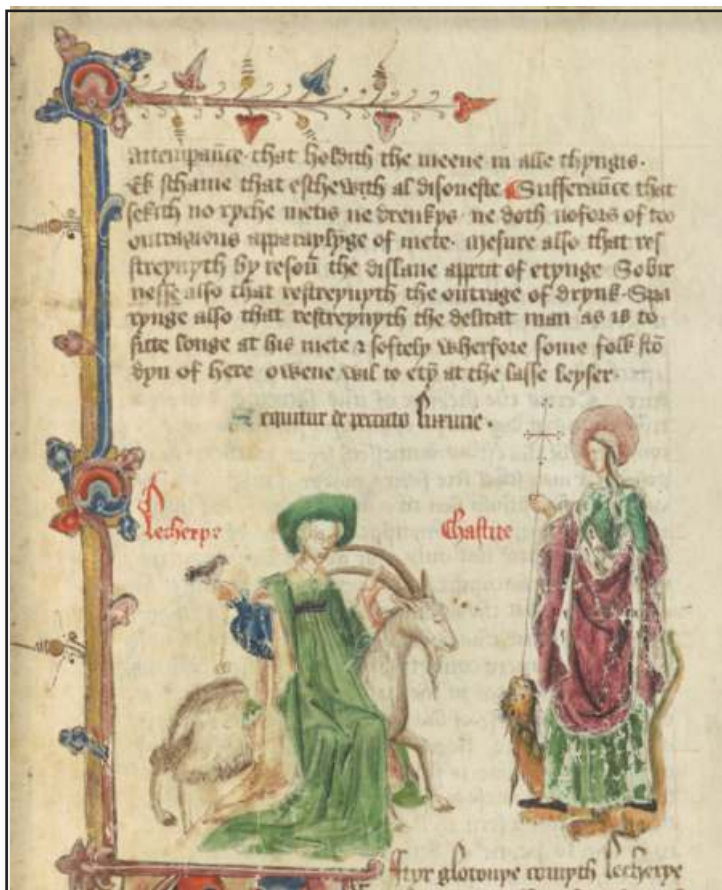 Attempaūce· that holdith the meene in alle thyngis·
Ek schame that eschewith al disoneste Sufferaūce that
sekith no ryche metis ne drenkys· ne doth nofors of too
outragious apparaylyge of mete· mesure also that res
streynyth by resoū the dislaue appetit of etynge Sobir
nesse also that restreynyth the outrage of drynk· Spa
rynge also that restreynyth the delicat man as is to
sitte longe at his mete & softely wherfore some folk stō
dyn of here owene wil to etȳ at the lasse leyser·
Sequitur de peccato luxurie·
Lecherye
Chastite
Aftyr glotonye comyth lecherye